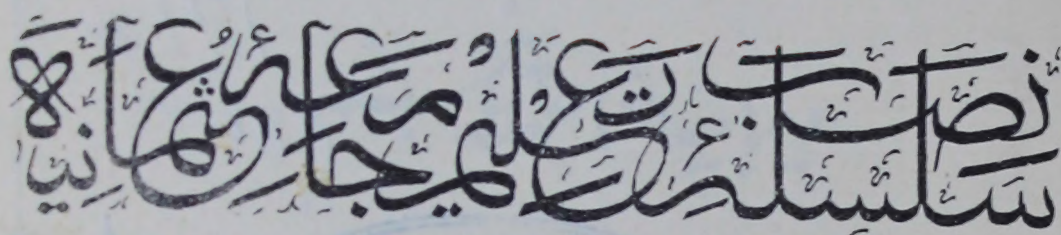 سلسلۂ نصاب تعلیم جامعۂ عثمانیہ